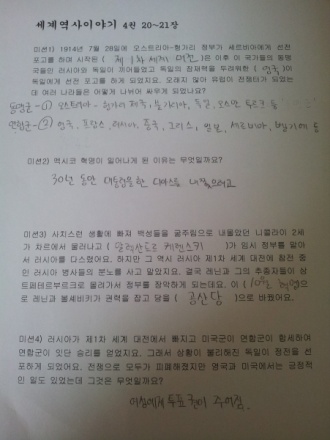 세계역사이야기 4권 20~21장
미션1) 1914년 7월 28일에 오스트리아-헝가리 정부가 세르비아에게 선전
포고를 하며 시작된 ( 제 1차 세계 대전 )은 이후 이 국가들의 동맹
국들인 러시아와 독일이 끼어들었고 독일의 침략을 두려워한 ( 영국 )이
독일에게 선전포고를 하게 되었지요. 오래지 않아 유럽이 전쟁터가 되었는
데 여러 나라들은 어떻게 나뉘어 싸우게 되었나요?
동맹군 - ① 오스트리아 - 헝가리 제국, 불가리아, 독일, 오스만 투르크 등
연합군 - ② 영국, 프랑스, 러시아, 중국, 그리스, 일본, 세르비아, 벨기에 등
미션2) 멕시코 혁명이 일어나게 된 이유는 무엇일까요?
30년 동안 대통령을 한 디아스를 내쫓으려고
미션3) 사치스런 생활에 빠져 백성들을 굶주림으로 내몰았던 니콜라이 2세
가 차르에서 물러나고 ( 알렉산드르 케렌스키 )가 임시 정부를 맡아
서 러시아를 다스렸어요. 하지만 그 역시 러시아 제1차 세계 대전에 참전 중
인 러시아 병사들의 분노를 사고 말았지요. 결국 레닌과 그의 추종자들이 상
트페테르부르크로 몰려가서 정부를 장악하게 되는데요. 이 ( 10월 혁명 )으
로 레닌과 볼셰비키가 권력을 잡고 당을 ( 공산당 )으로 바꿨어요.
미션4) 러시아가 제1차 세계 대전에서 빠지고 미국군이 연합군이 합세하여
연합군이 잇단 승리를 얻었지요. 그래서 상황이 불리해진 독일이 정전을 선
포하게 되어요. 전쟁으로 모두가 피폐해졌지만 영국과 미국에서는 긍정적
인 일도 있었는데 그것은 무엇일까요?
여성에게 투표권이 주어짐.